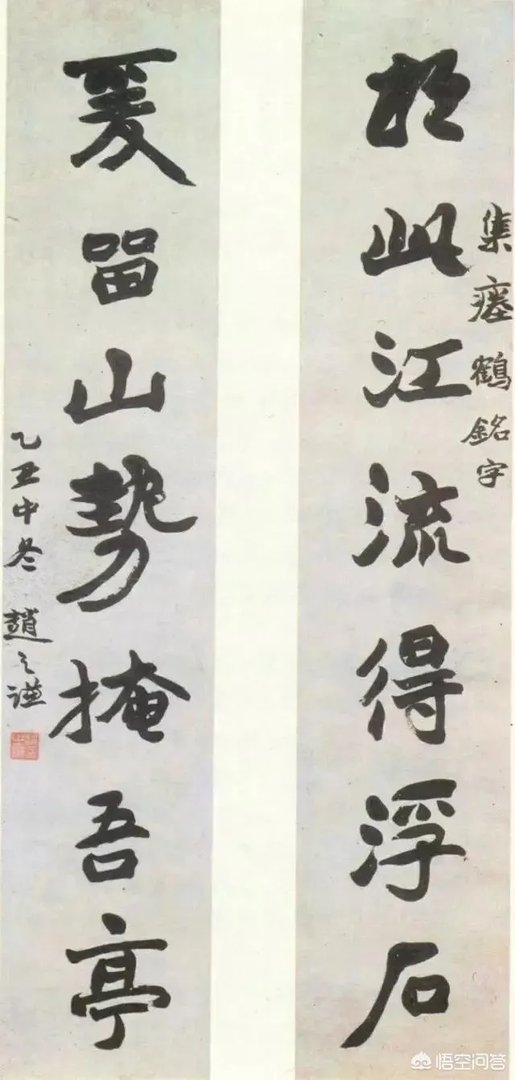 集瘞鶴銘字
於此江流得浮石
爰留山勢掩吾亭
乙丑中冬 趙之謙
悟空问答